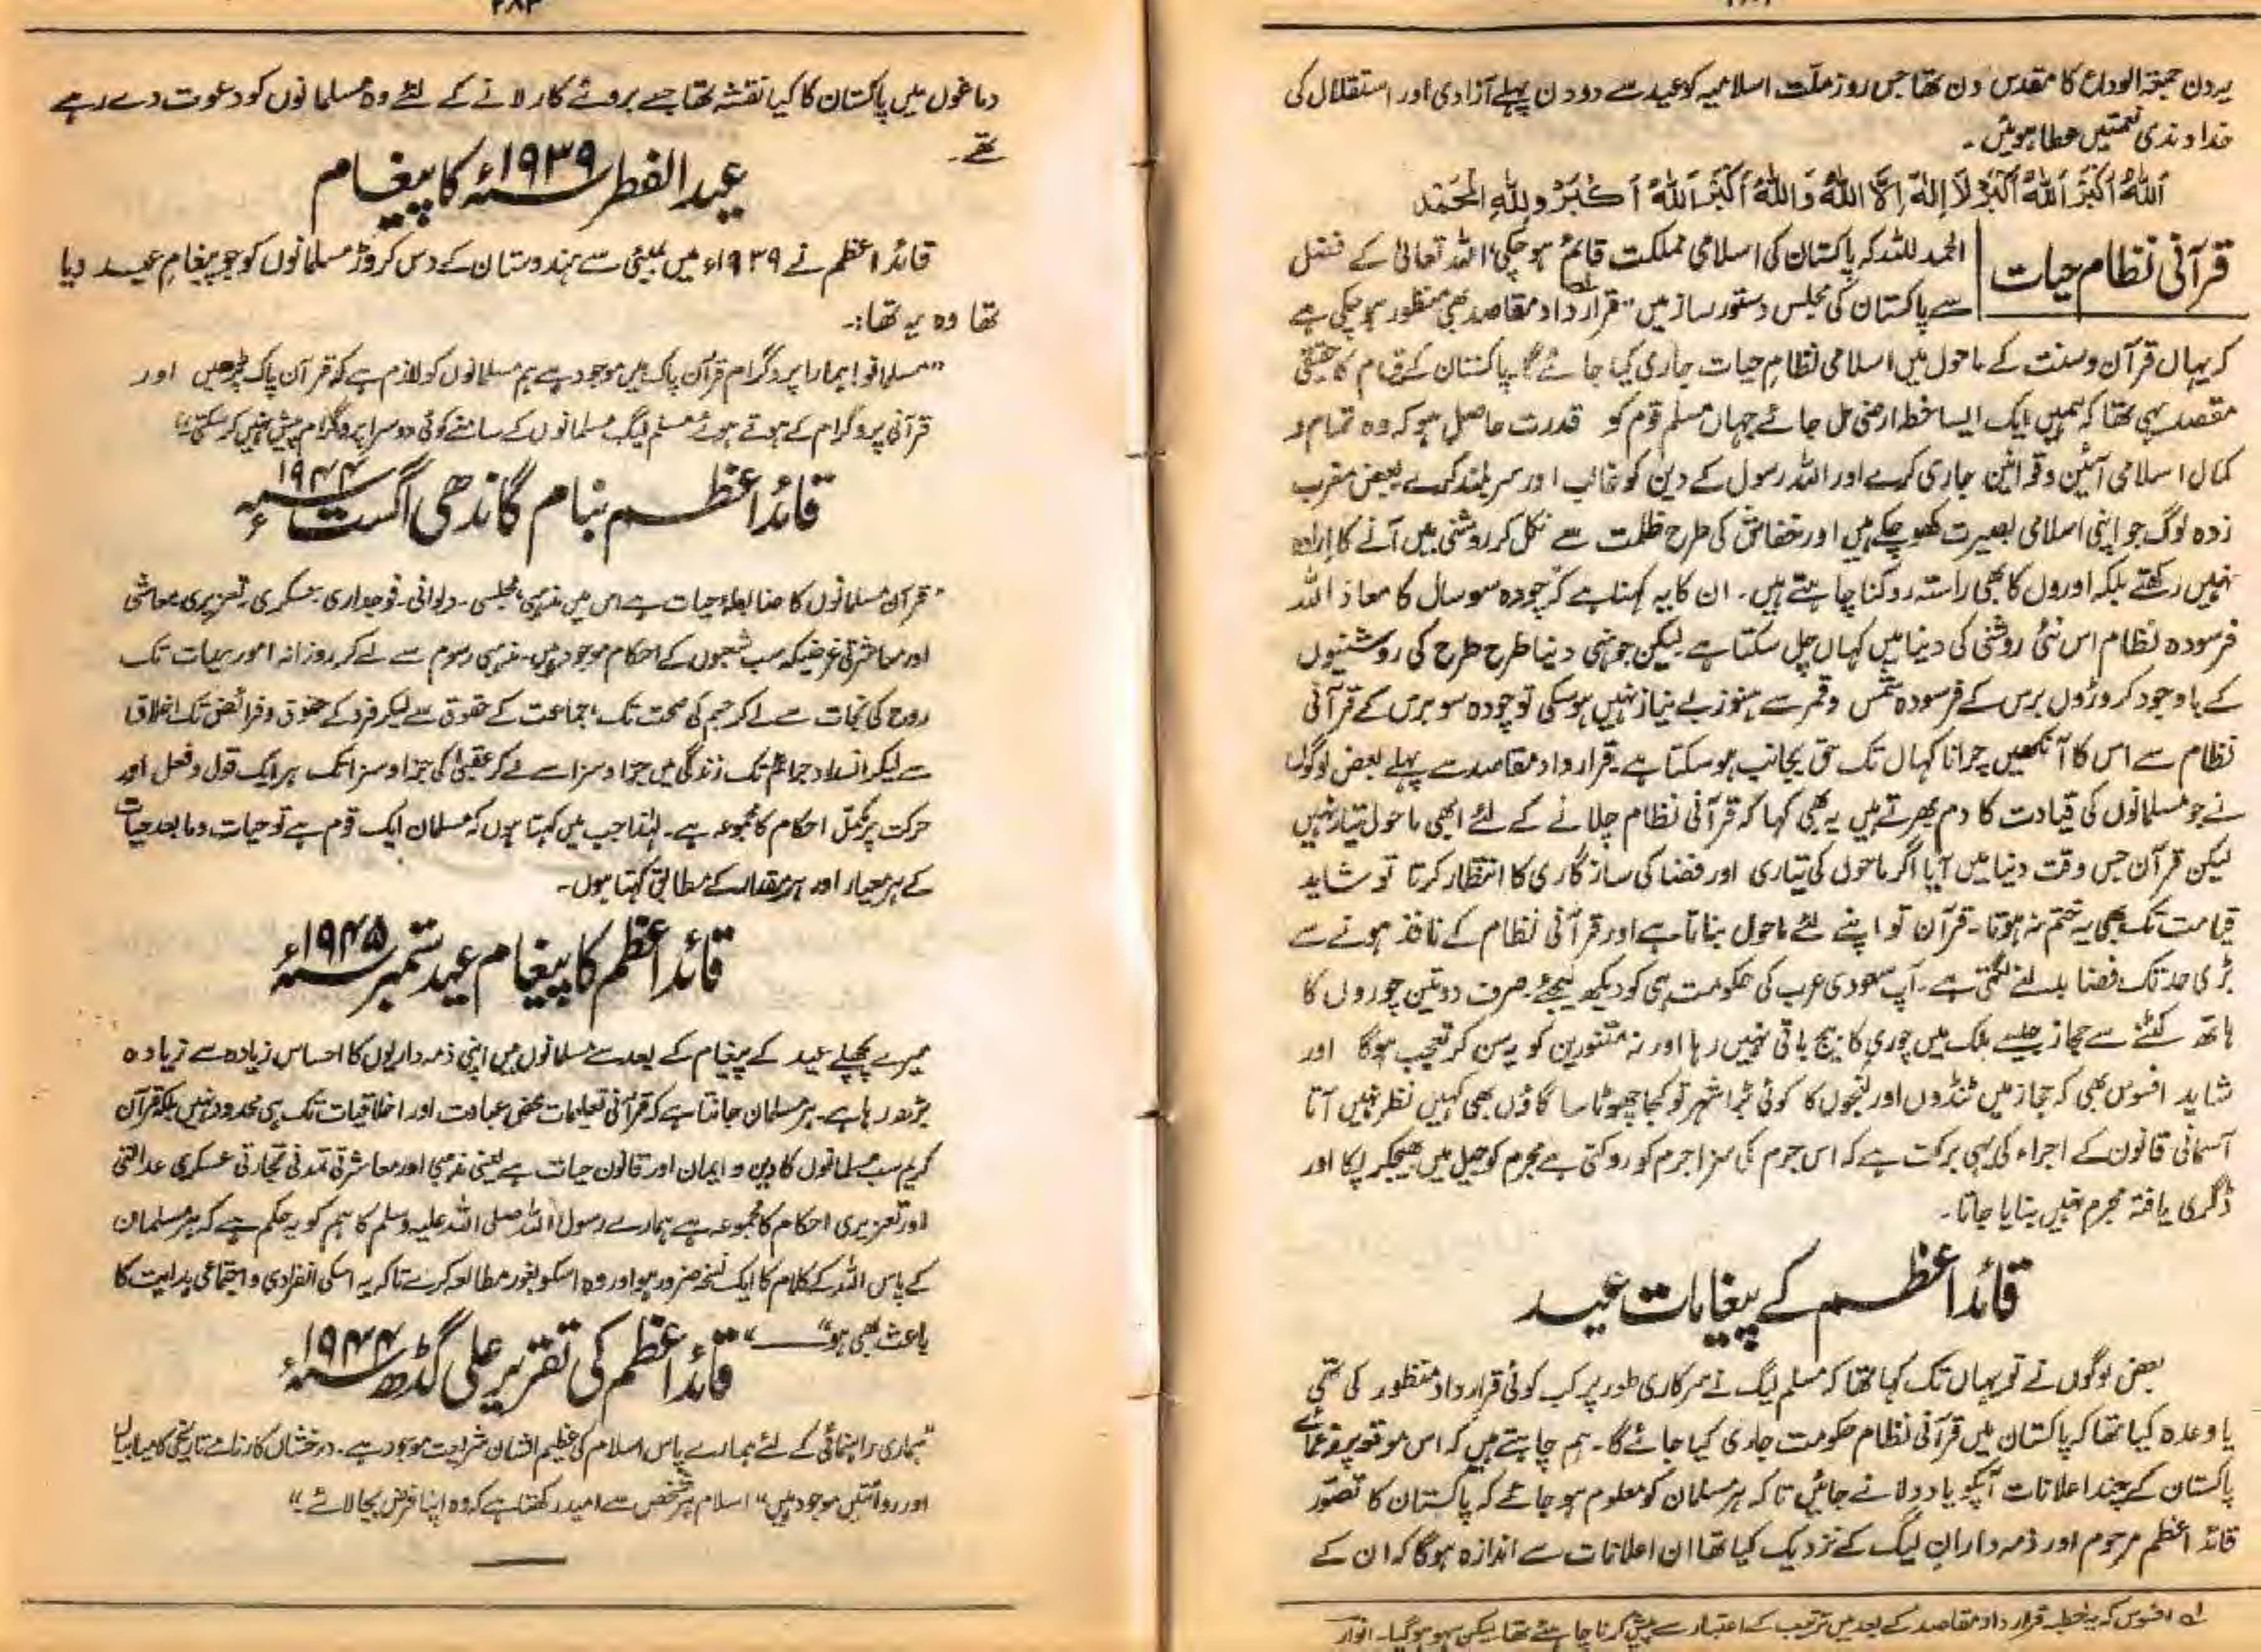 یہ دن جمعۃ الوداع کا مقدس دن تھا جس روز ملّت اسلامیہ کو عید سے دو دن پہلے آزادی اور استقلال کی
خداوندی نعمتیں عطا ہوئیں۔
اَللّٰہُ اَکْبَرُ اَللّٰہُ اَکْبَرُ لَا اِلٰہَ اِلَّا اللّٰہُ وَاللّٰہُ اَکْبَرُ اَللّٰہُ اَکْبَرُ وَلِلّٰہِ الْحَمْد
قرآنی نظام حیات
الحمد للہ کہ پاکستان کی اسلامی مملکت قائم ہو چکی، اللہ تعالیٰ کے فضل
سے پاکستان کی مجلس دستور ساز میں "قرار داد مقاصد بھی منظور ہو چکی ہے
کہ یہاں قرآن و سنت کے ماحول میں اسلامی نظامِ حیات جاری کیا جائے گا۔ پاکستان کے قیام کا حقیقی
مقصد یہی تھا کہ ہمیں ایک ایسا خطہ ارضی مل جائے جہاں مسلم قوم کو قدرت حاصل ہو کہ وہ تمام و
کمال اسلامی آئین و قوانین جاری کرے اور اللہ رسول کے دین کو غالب اور سربلند کرے۔ بعض مغرب
زدہ لوگ جو اپنی اسلامی بصیرت کھو چکے ہیں اور خفاش کی طرح ظلمت سے نکل کر روشنی میں آنے کا ارادہ
نہیں رکھتے بلکہ اوروں کا بھی راستہ روکنا چاہتے ہیں۔ ان کا یہ کہنا ہے کہ چودہ سو سال کا معاذ اللہ
فرسودہ نظام اس نئی روشنی کی دنیا میں کہاں چل سکتا ہے لیکن جونہی دنیا طرح طرح کی روشنیوں
کے باوجود کروڑوں برس کے فرسودہ شمس و قمر سے ہنوز بے نیاز نہیں ہو سکی تو چودہ سو برس کے قرآنی
نظام سے اس کا آنکھیں چرانا کہاں تک حق بجانب ہو سکتا ہے۔ قرار داد مقاصد سے پہلے بعض لوگوں
نے جو مسلمانوں کی قیادت کا دم بھرتے ہیں یہ بھی کہا کہ قرآنی نظام چلانے کے لئے ابھی ماحول تیار نہیں
لیکن قرآن جس وقت دنیا میں آیا اگر ماحول کی تیاری اور فضا کی سازگاری کا انتظار کرتا تو شاید
قیامت تک بھی یہ ختم نہ ہوتا۔ قرآن تو اپنے لئے ماحول بناتا ہے اور قرآنی نظام کے نافذ ہونے سے
بڑی حد تک فضا بدلنے لگتی ہے۔ آپ سعودی عرب کی حکومت ہی کو دیکھ لیجئے۔ صرف دو تین چوروں کا
ہاتھ کٹنے سے حجاز جیسے ملک میں چوری کا بیج باقی نہیں رہا اور نہ متنورین کو یہ سن کر تعجب ہوگا اور
شاید افسوس بھی کہ حجاز میں ٹنڈوں اور لنجوں کا کوئی بڑا شہر تو کجا چھوٹا سا گاؤں بھی کہیں نظر نہیں آتا
آسمانی قانون کے اجراء کی یہی برکت ہے کہ اس جرم کی سزا جرم کو روکتی ہے مجرم کو جیل میں بھیجکر پکا اور
ڈگری یافتہ مجرم نہیں بنایا جاتا۔
قائد اعظم کے پیغامات عید
بعض لوگوں نے تو یہاں تک کہا تھا کہ مسلم لیگ نے سرکاری طور پر کب کوئی قرار داد منظور کی تھی
یا وعدہ کیا تھا کہ پاکستان میں قرآنی نظام حکومت جاری کیا جائے گا۔ ہم چاہتے ہیں کہ اس موقع پر زعمائے
پاکستان کے چند اعلانات آپکو یاد دلائے جائیں تاکہ ہر مسلمان کو معلوم ہو جائے کہ پاکستان کا تصوّر
قائد اعظم مرحوم اور ذمہ داران لیگ کے نزدیک کیا تھا ان اعلانات سے اندازہ ہوگا کہ ان کے
لہ افسوس کہ یہ خطبہ قرار داد مقاصد کے بعد میں ترتیب کے اعتبار سے پیش کرنا چاہئے تھا لیکن سہو ہو گیا۔ انوار
۲۸۳
دماغوں میں پاکستان کا کیا نقشہ تھا جسے بروئے کار لانے کے لئے وہ مسلمانوں کو دعوت دے رہے
تھے۔
عید الفطر ۱۹۳۹ء کا پیغام
قائد اعظم نے ۱۹۳۹ء میں بمبئی سے ہندوستان کے دس کروڑ مسلمانوں کو جو پیغام عید دیا
تھا وہ یہ تھا:۔
"مسلمانو! ہمارا پروگرام قرآن پاک میں موجود ہے ہم مسلمانوں کو لازم ہے کہ قرآن پاک پڑھیں اور
قرآنی پروگرام کے ہوتے ہوئے مسلم لیگ مسلمانوں کے سامنے کوئی دوسرا پروگرام پیش نہیں کر سکتی"
قائد اعظم بنام گاندھی اگست ۱۹۴۴ء
"قرآن مسلمانوں کا ضابطۂ حیات ہے اس میں مذہبی، مجلسی۔ دیوانی۔ فوجداری۔ عسکری۔ تعزیری معاشی
اور معاشرتی غرضیکہ سب شعبوں کے احکام موجود ہیں۔ مذہبی رسوم سے لے کر روزانہ امور حیات تک
روح کی نجات سے لے کر جسم کی صحت تک، جماعت کے حقوق سے لیکر فرد کے حقوق و فرائض تک اخلاق
سے لیکر انسداد جرائم تک زندگی میں جزا و سزا سے لے کر عقبیٰ کی جزا و سزا تک ہر ایک قول و فعل اور
حرکت پر مکمل احکام کا مجموعہ ہے۔ لہٰذا جب میں کہتا ہوں کہ مسلمان ایک قوم ہے تو حیات و ما بعد حیات
کے ہر معیار اور ہر مقدار کے مطابق کہتا ہوں۔
قائد اعظم کا پیغام عید ستمبر ۱۹۴۵ء
میرے پچھلے عید کے پیغام کے بعد سے مسلمانوں میں اپنی ذمہ داریوں کا احساس زیادہ سے زیادہ
بڑھ رہا ہے۔ ہر مسلمان جانتا ہے کہ قرآنی تعلیمات محض عبادت اور اخلاقیات تک ہی محدود نہیں بلکہ قرآن
کریم سب مسلمانوں کا دین و ایمان اور قانون حیات ہے یعنی مذہبی اور معاشرتی تمدنی تجارتی عسکری عدالتی
اور تعزیری احکام کا مجموعہ ہے ہمارے رسول اللہ صلی اللہ علیہ وسلم کا ہم کو یہ حکم ہے کہ ہر مسلمان
کے پاس اللہ کے کلام کا ایک نسخہ ضرور ہو اور وہ اسکو بغور مطالعہ کرے تاکہ یہ اسکی انفرادی و اجتماعی ہدایت کا
باعث بھی ہو"
قائد اعظم کی تقریر علی گڈھ ۱۹۴۴ء
"ہماری راہنمائی کے لئے ہمارے پاس اسلام کی عظیم الشان شریعت موجود ہے۔ درخشاں کارنامے تاریخی کامیابیاں
اور روائتیں موجود ہیں" اسلام ہر شخص سے امید رکھتا ہے کہ وہ اپنا فرض بجا لائے۔"